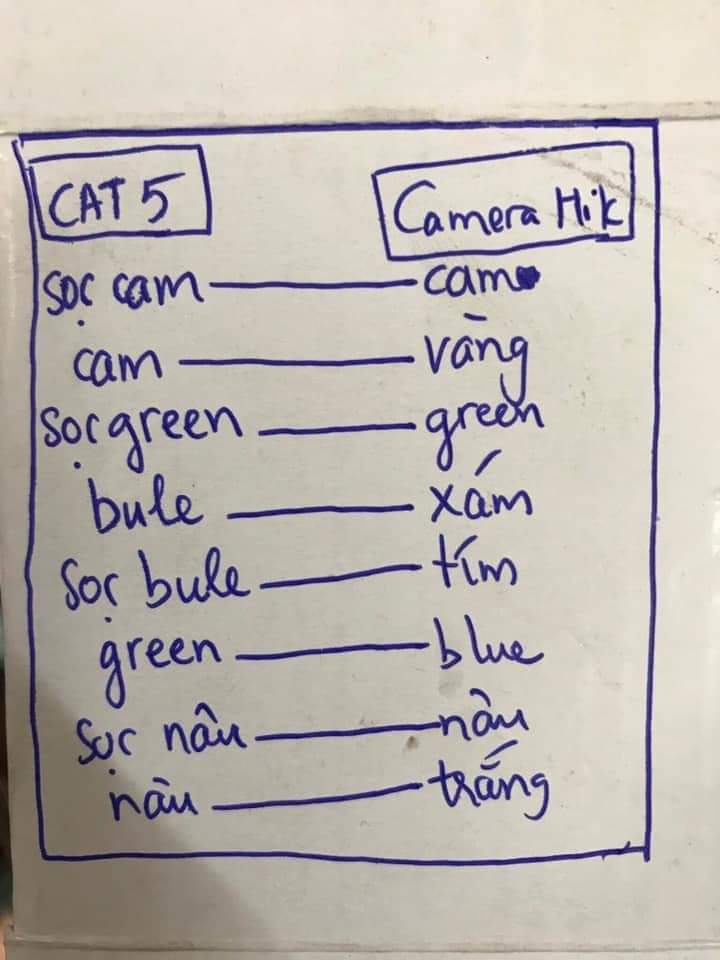 CAT 5 Camera Hik
sọc cam cam
cam vàng
sọc green green
bule xám
sọc bule tím
green blue
sọc nâu nâu
nâu trắng